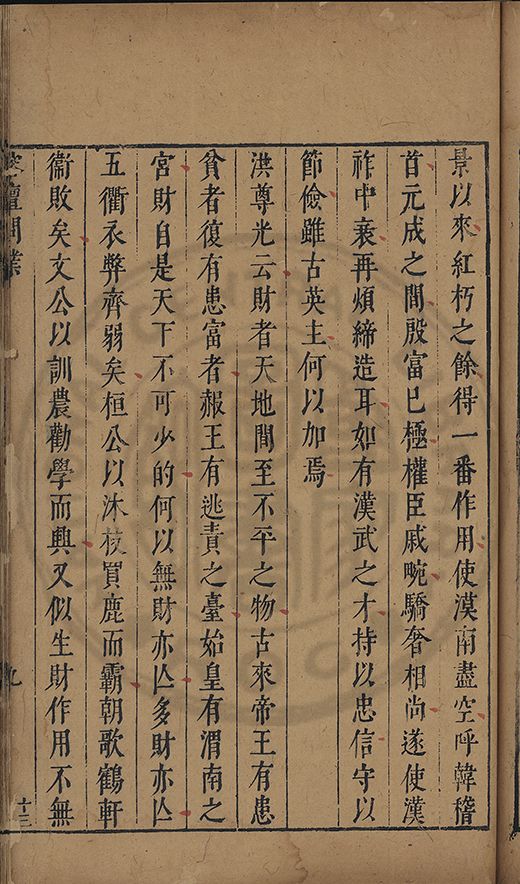 景以來紅朽之餘得一番作用使漠南盡空呼韓稽
首元成之間殷富已極權臣戚畹驕奢相尚遂使漢
祚中衰再煩締造耳如有漢武之才持以忠信守以
節儉雖古英主何以加焉
洪尊光云財者天地間至不平之物古來帝王有患
貧者復有患富者赧王有逃責之臺始皇有渭南之
宮財自是天下不可少的何以無財亦亾多財亦亾
五衢衣弊齊弱矣桓公以沐枝買鹿而霸朝歌鶴軒
衞敗矣文公以訓農勸學而興又似生財作用不無
問業
九
十三